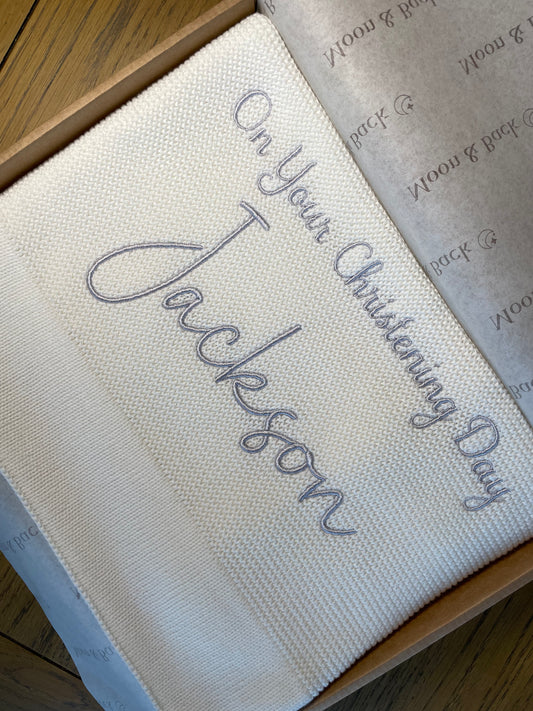 On Your Christening Day
Jackson
Moon & Back
Moon & Back
Back
Moon & Back
Back
Moon & Back
Moon & Back